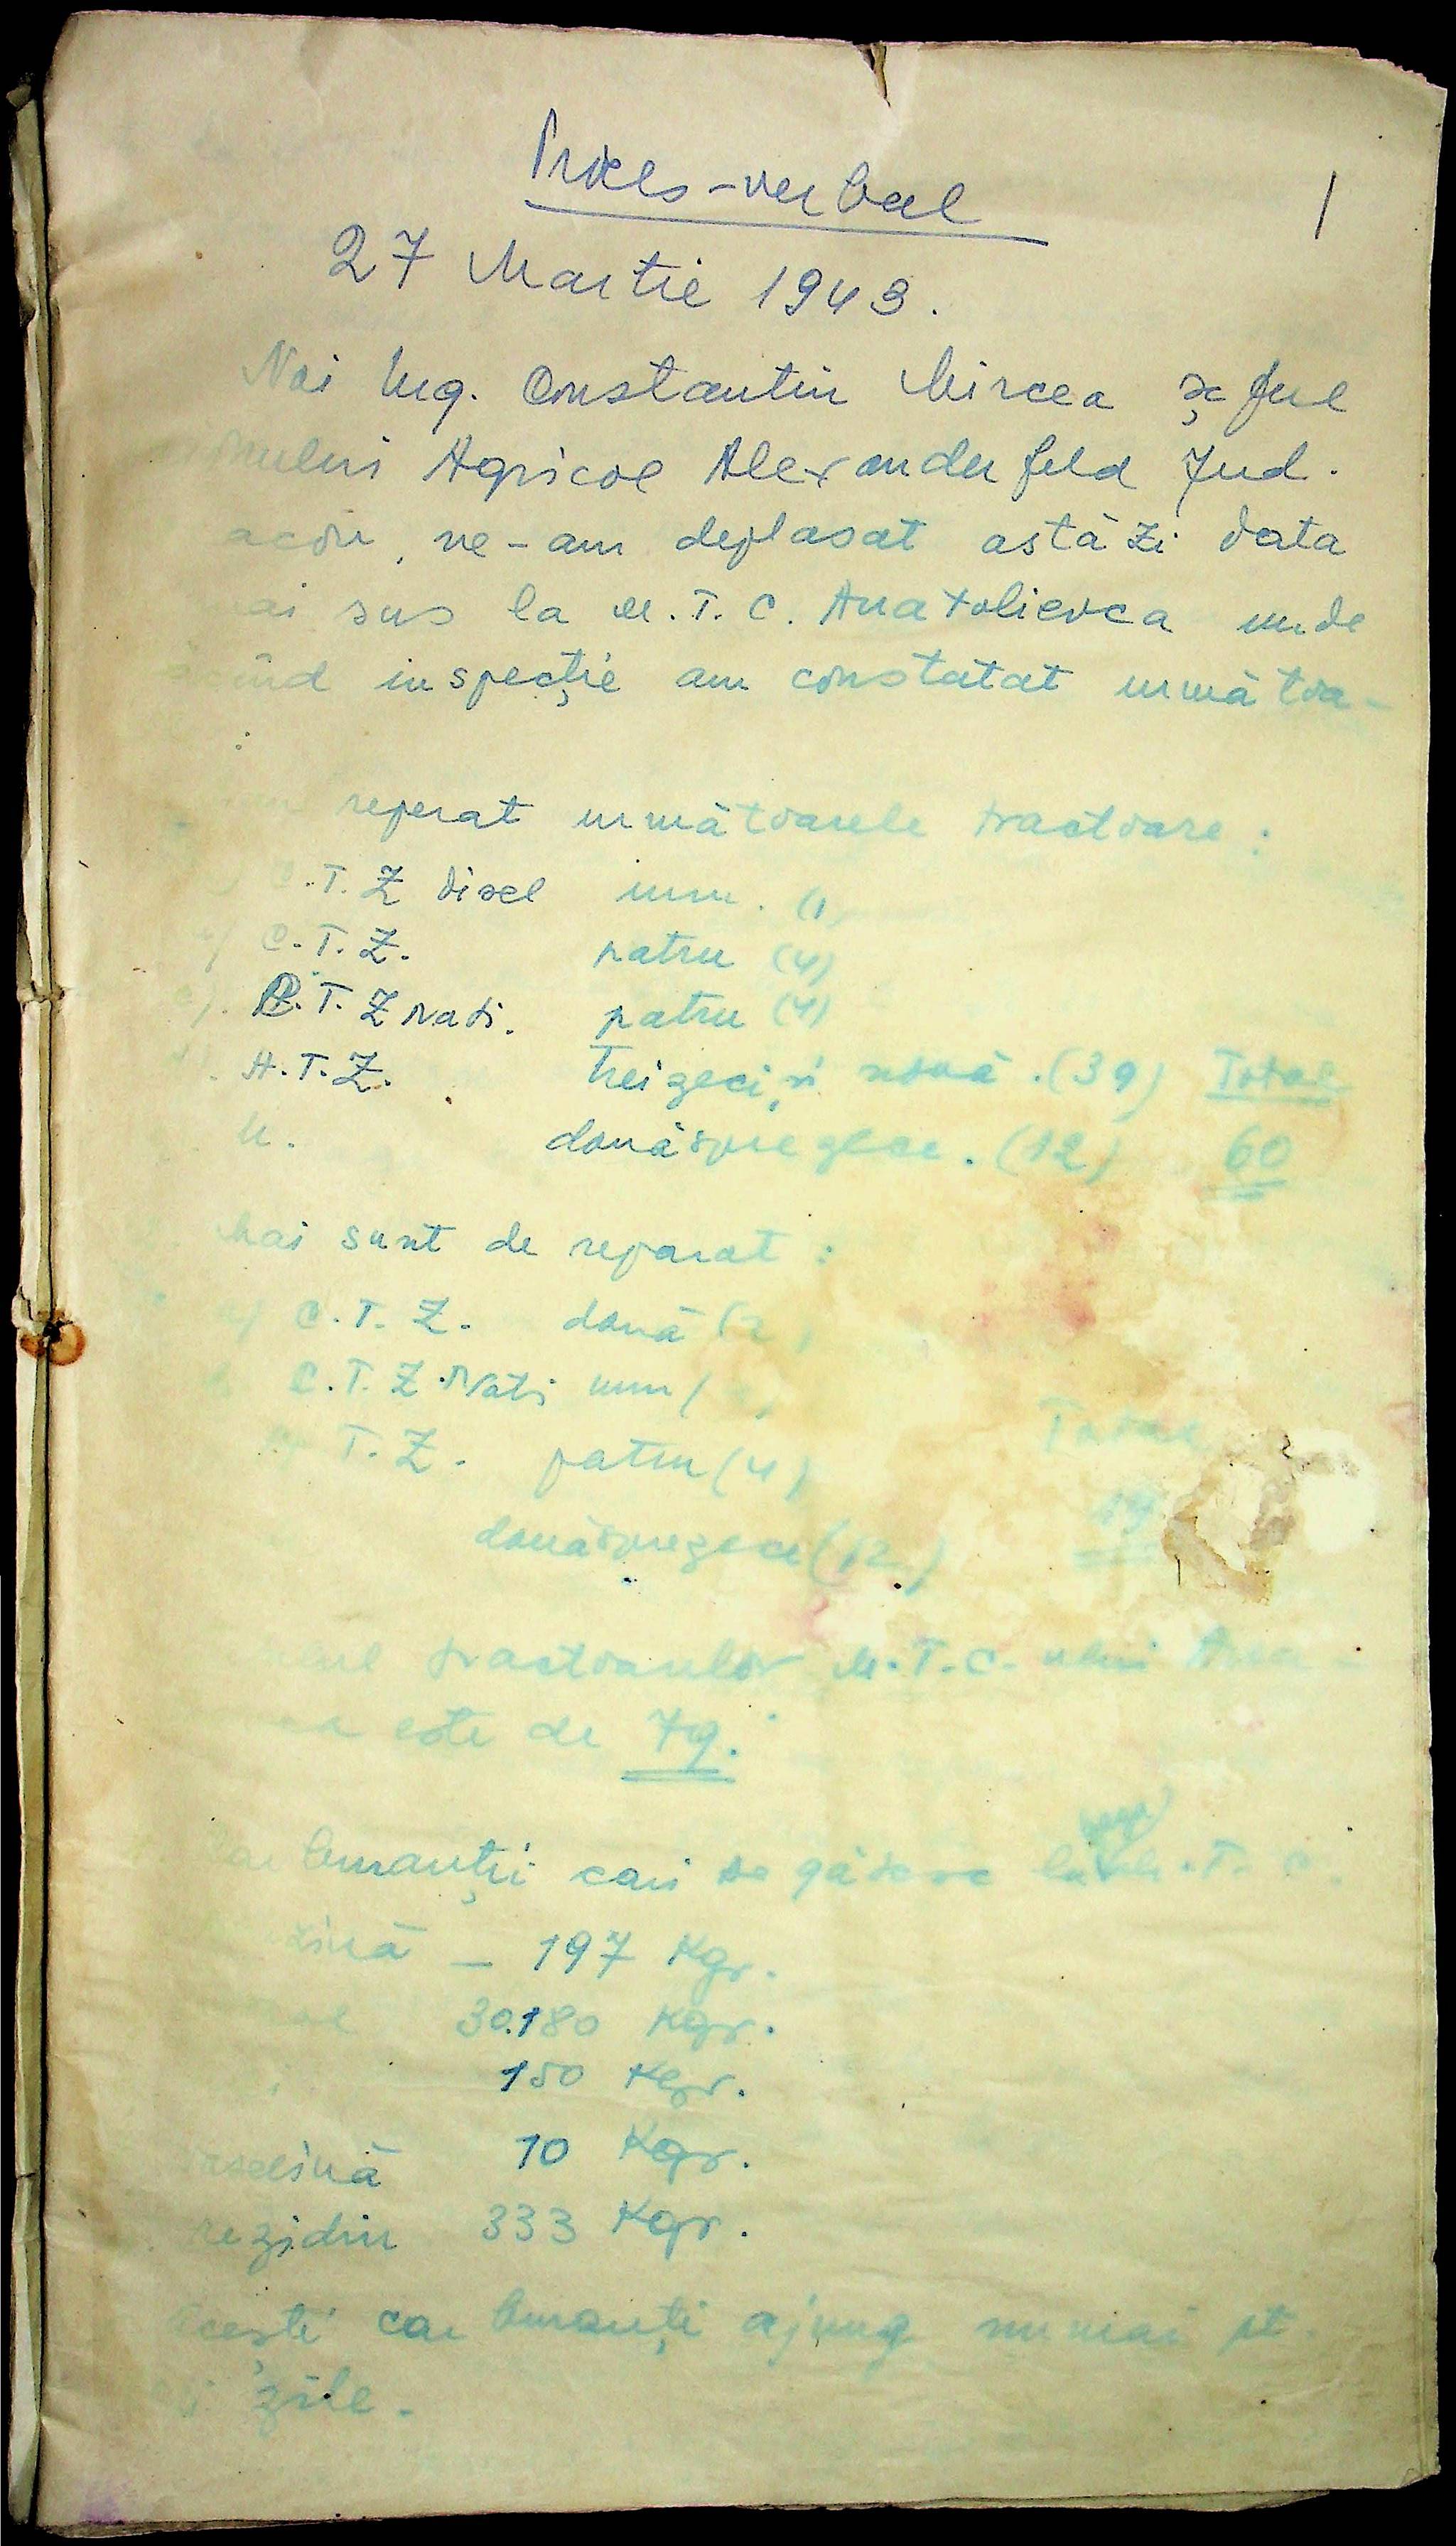 Proces-verbal
1
27 Martie 1943.
Noi Ing. Constantin Mircea șeful
Agricol Alexanderfeld Jud.
ne-am deplasat astăzi data
sus la M.T.C. Anatolievca unde
inspecție am constatat urmatoa-
:
reperat urmatoarele tractoare :
C.T.Z disel unu. (1)
C.T.Z. patru (4)
C.T.Z Nati. patru (4)
H.T.Z. treizeci și nouă. (39) Total
U. douăsprezece. (12) 60
Mai sunt de reparat :
a) C.T.Z. două (2)
C.T.Z Nati unu (
T.Z. patru (4) Total
douăsprezece (12) 19
tractoarelor M.T.C. ului Ana-
este de 79.
se găsesc la M.T.C.
- 197 Kgr.
30.180 Kgr.
150 Kgr.
10 Kgr.
333 Kgr.
carburanți ajung numai pt.
zile.